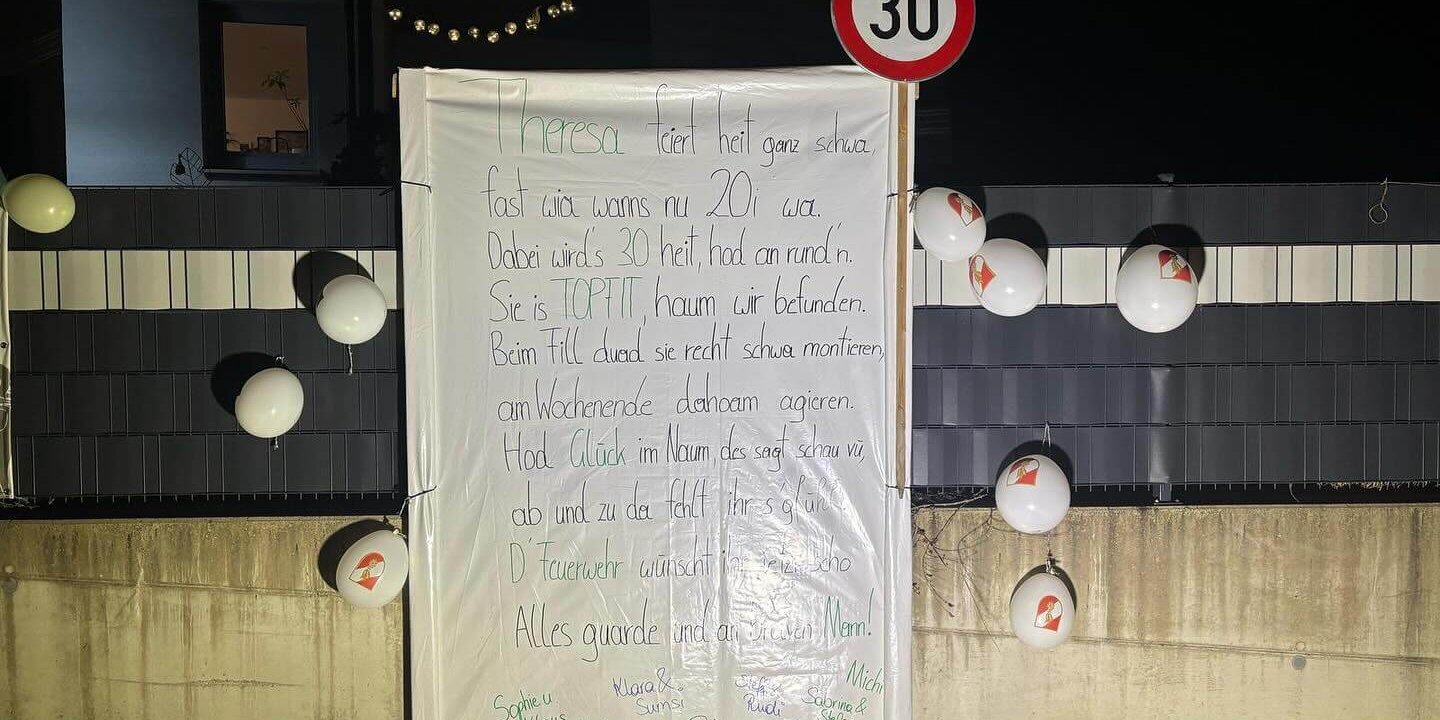 30
Theresa feiert heit ganz schwa,
fast wia wanns nu 20i wa.
Dabei wird's 30 heit, hod an rund'n.
Sie is TOPFIT, haum wir befunden.
Beim Fill duad sie recht schwa montieren,
am Wochenende dahoam agieren.
Hod Glück im Naum, des sagt schau vü,
ab und zu da fehlt ihr s'gfühl.
D'Feuerwehr wünscht ihr jetzt scho
Alles guade und an braven Mann!
Michi
Klara &
Sumsi
Rudi
Sabrina &
Sophie u